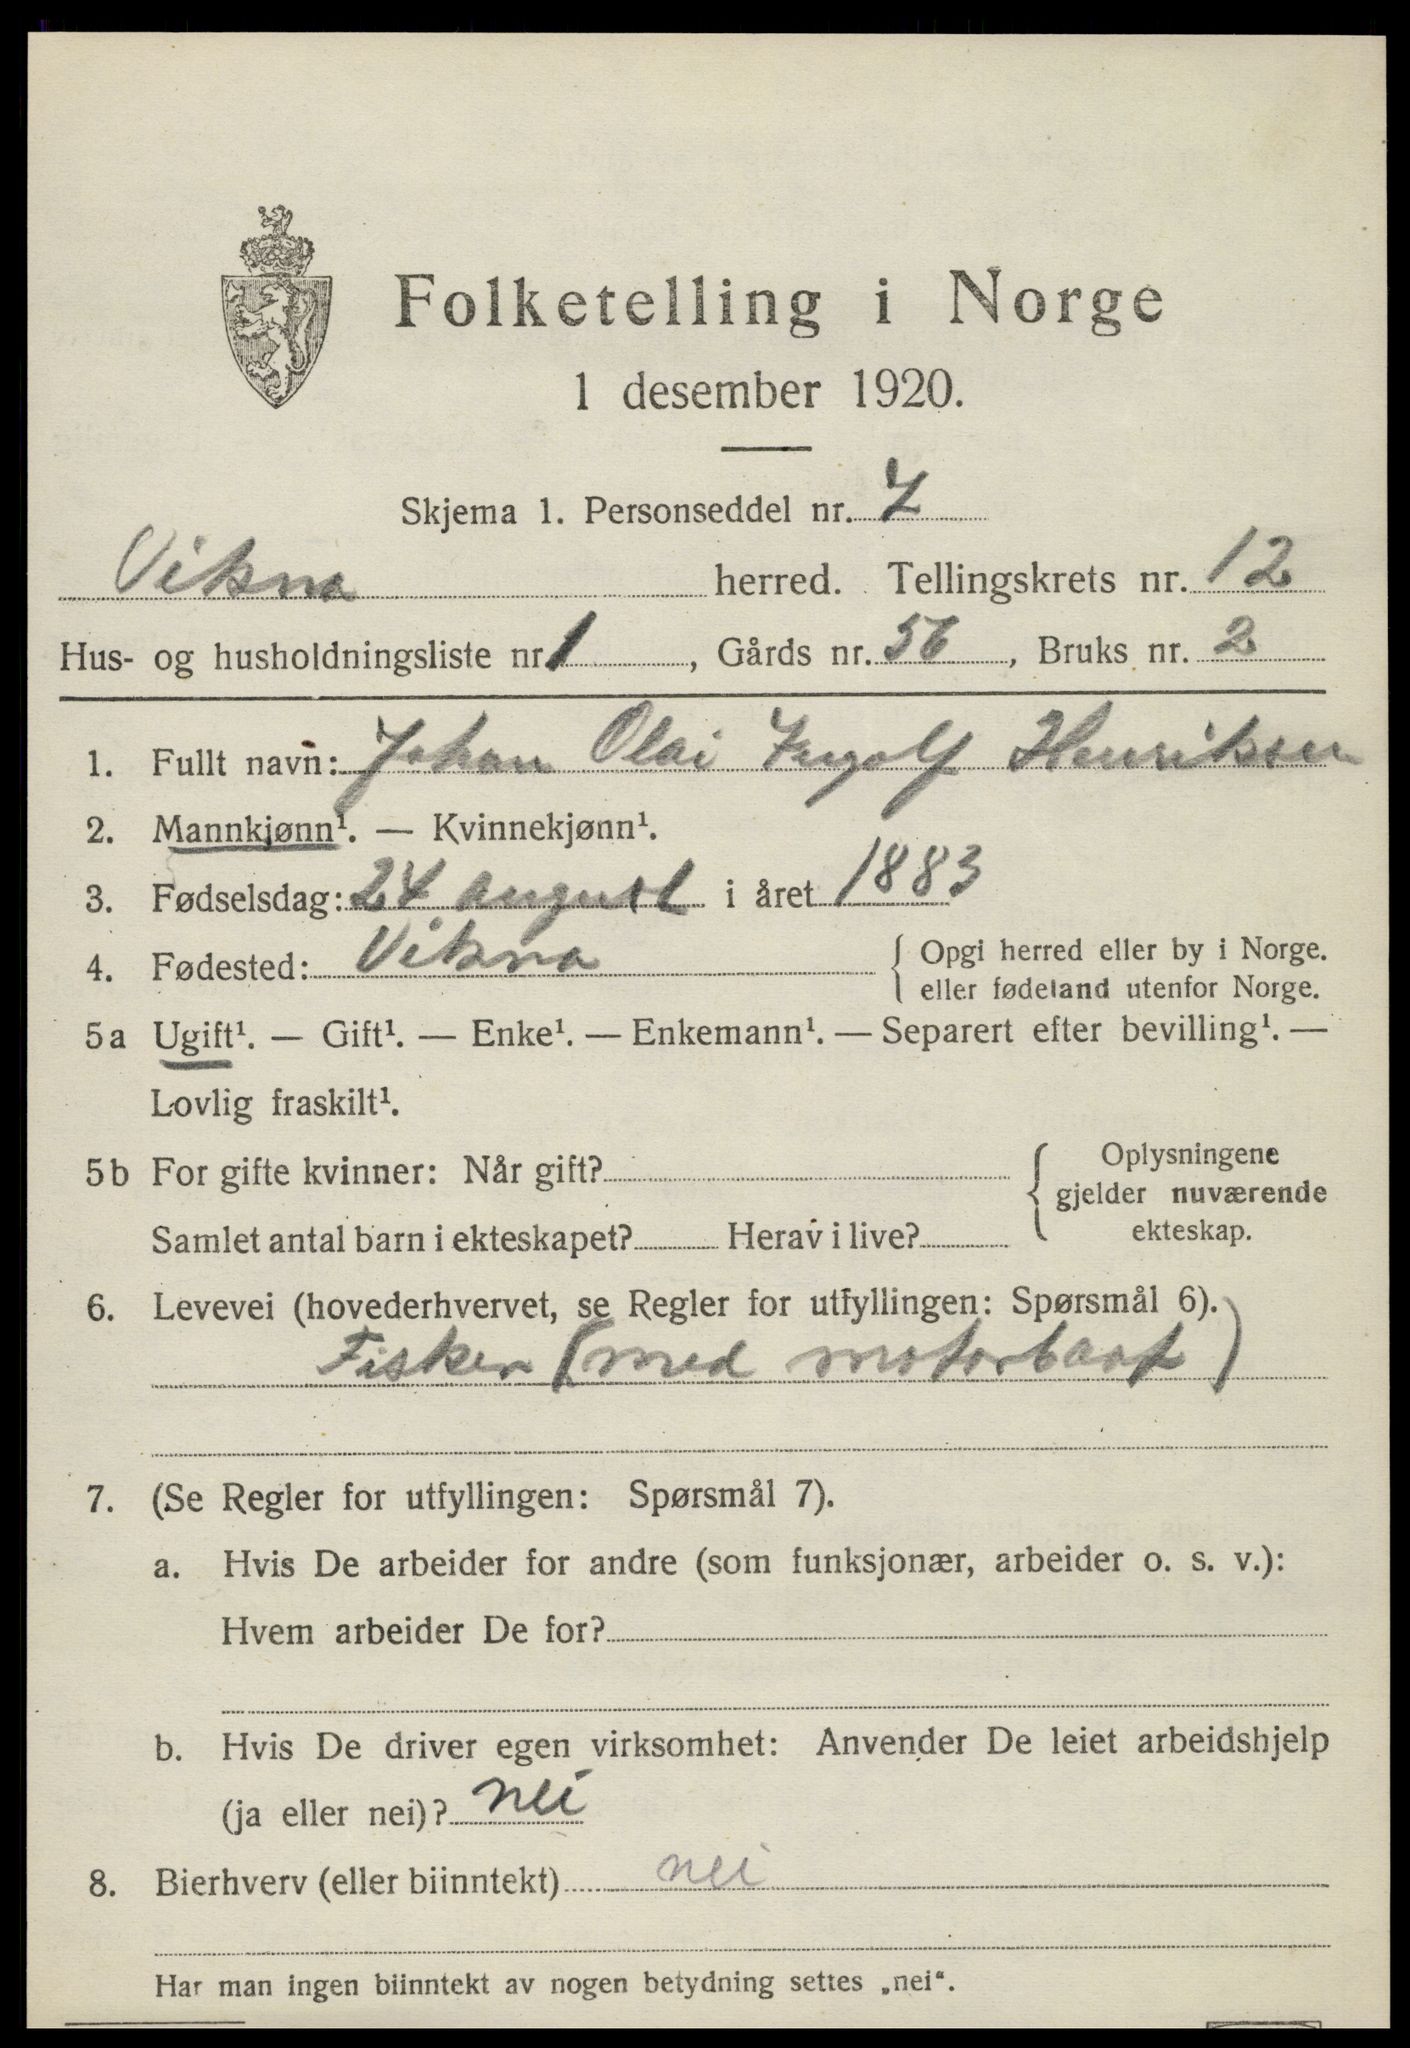 Folketelling i Norge
1 desember 1920.
Skjema 1. Personseddel nr. 7
Vikna herred. Tellingskrets nr. 12
Hus- og husholdningsliste nr. 1, Gårds nr. 56, Bruks nr. 2
1. Fullt navn: Johan Olai Ingolf Henriksen
2. Mannkjønn¹. — Kvinnekjønn¹.
3. Fødselsdag: 24 august i året 1883
4. Fødested: Vikna { Opgi herred eller by i Norge.
eller fødeland utenfor Norge.
5a Ugift¹. — Gift¹. — Enke¹. — Enkemann¹. — Separert efter bevilling¹. —
Lovlig fraskilt¹.
5b For gifte kvinner: Når gift?
Samlet antal barn i ekteskapet? Herav i live?
{ Oplysningene
gjelder nuværende
ekteskap.
6. Levevei (hovederhvervet, se Regler for utfyllingen: Spørsmål 6).
Fisker (med motorbaat)
7. (Se Regler for utfyllingen: Spørsmål 7).
a. Hvis De arbeider for andre (som funksjonær, arbeider o. s. v.):
Hvem arbeider De for?
b. Hvis De driver egen virksomhet: Anvender De leiet arbeidshjelp
(ja eller nei)? nei
8. Bierhverv (eller biinntekt) nei
Har man ingen biinntekt av nogen betydning settes „nei“.